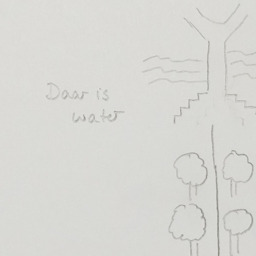 Daar is
water